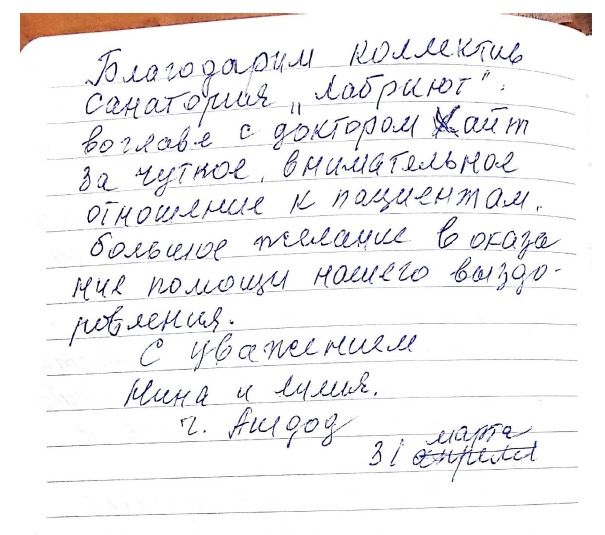 Благодарим коллектив
санатория "Лабриют".
во главе с доктором Хайт
за чуткое, внимательное
отношение к пациентам.
большое желание в оказа
ние помощи нашего выздо-
ровления.
С уважением
Нина и Лилия.
г. Ашдод
марта
31 апреля